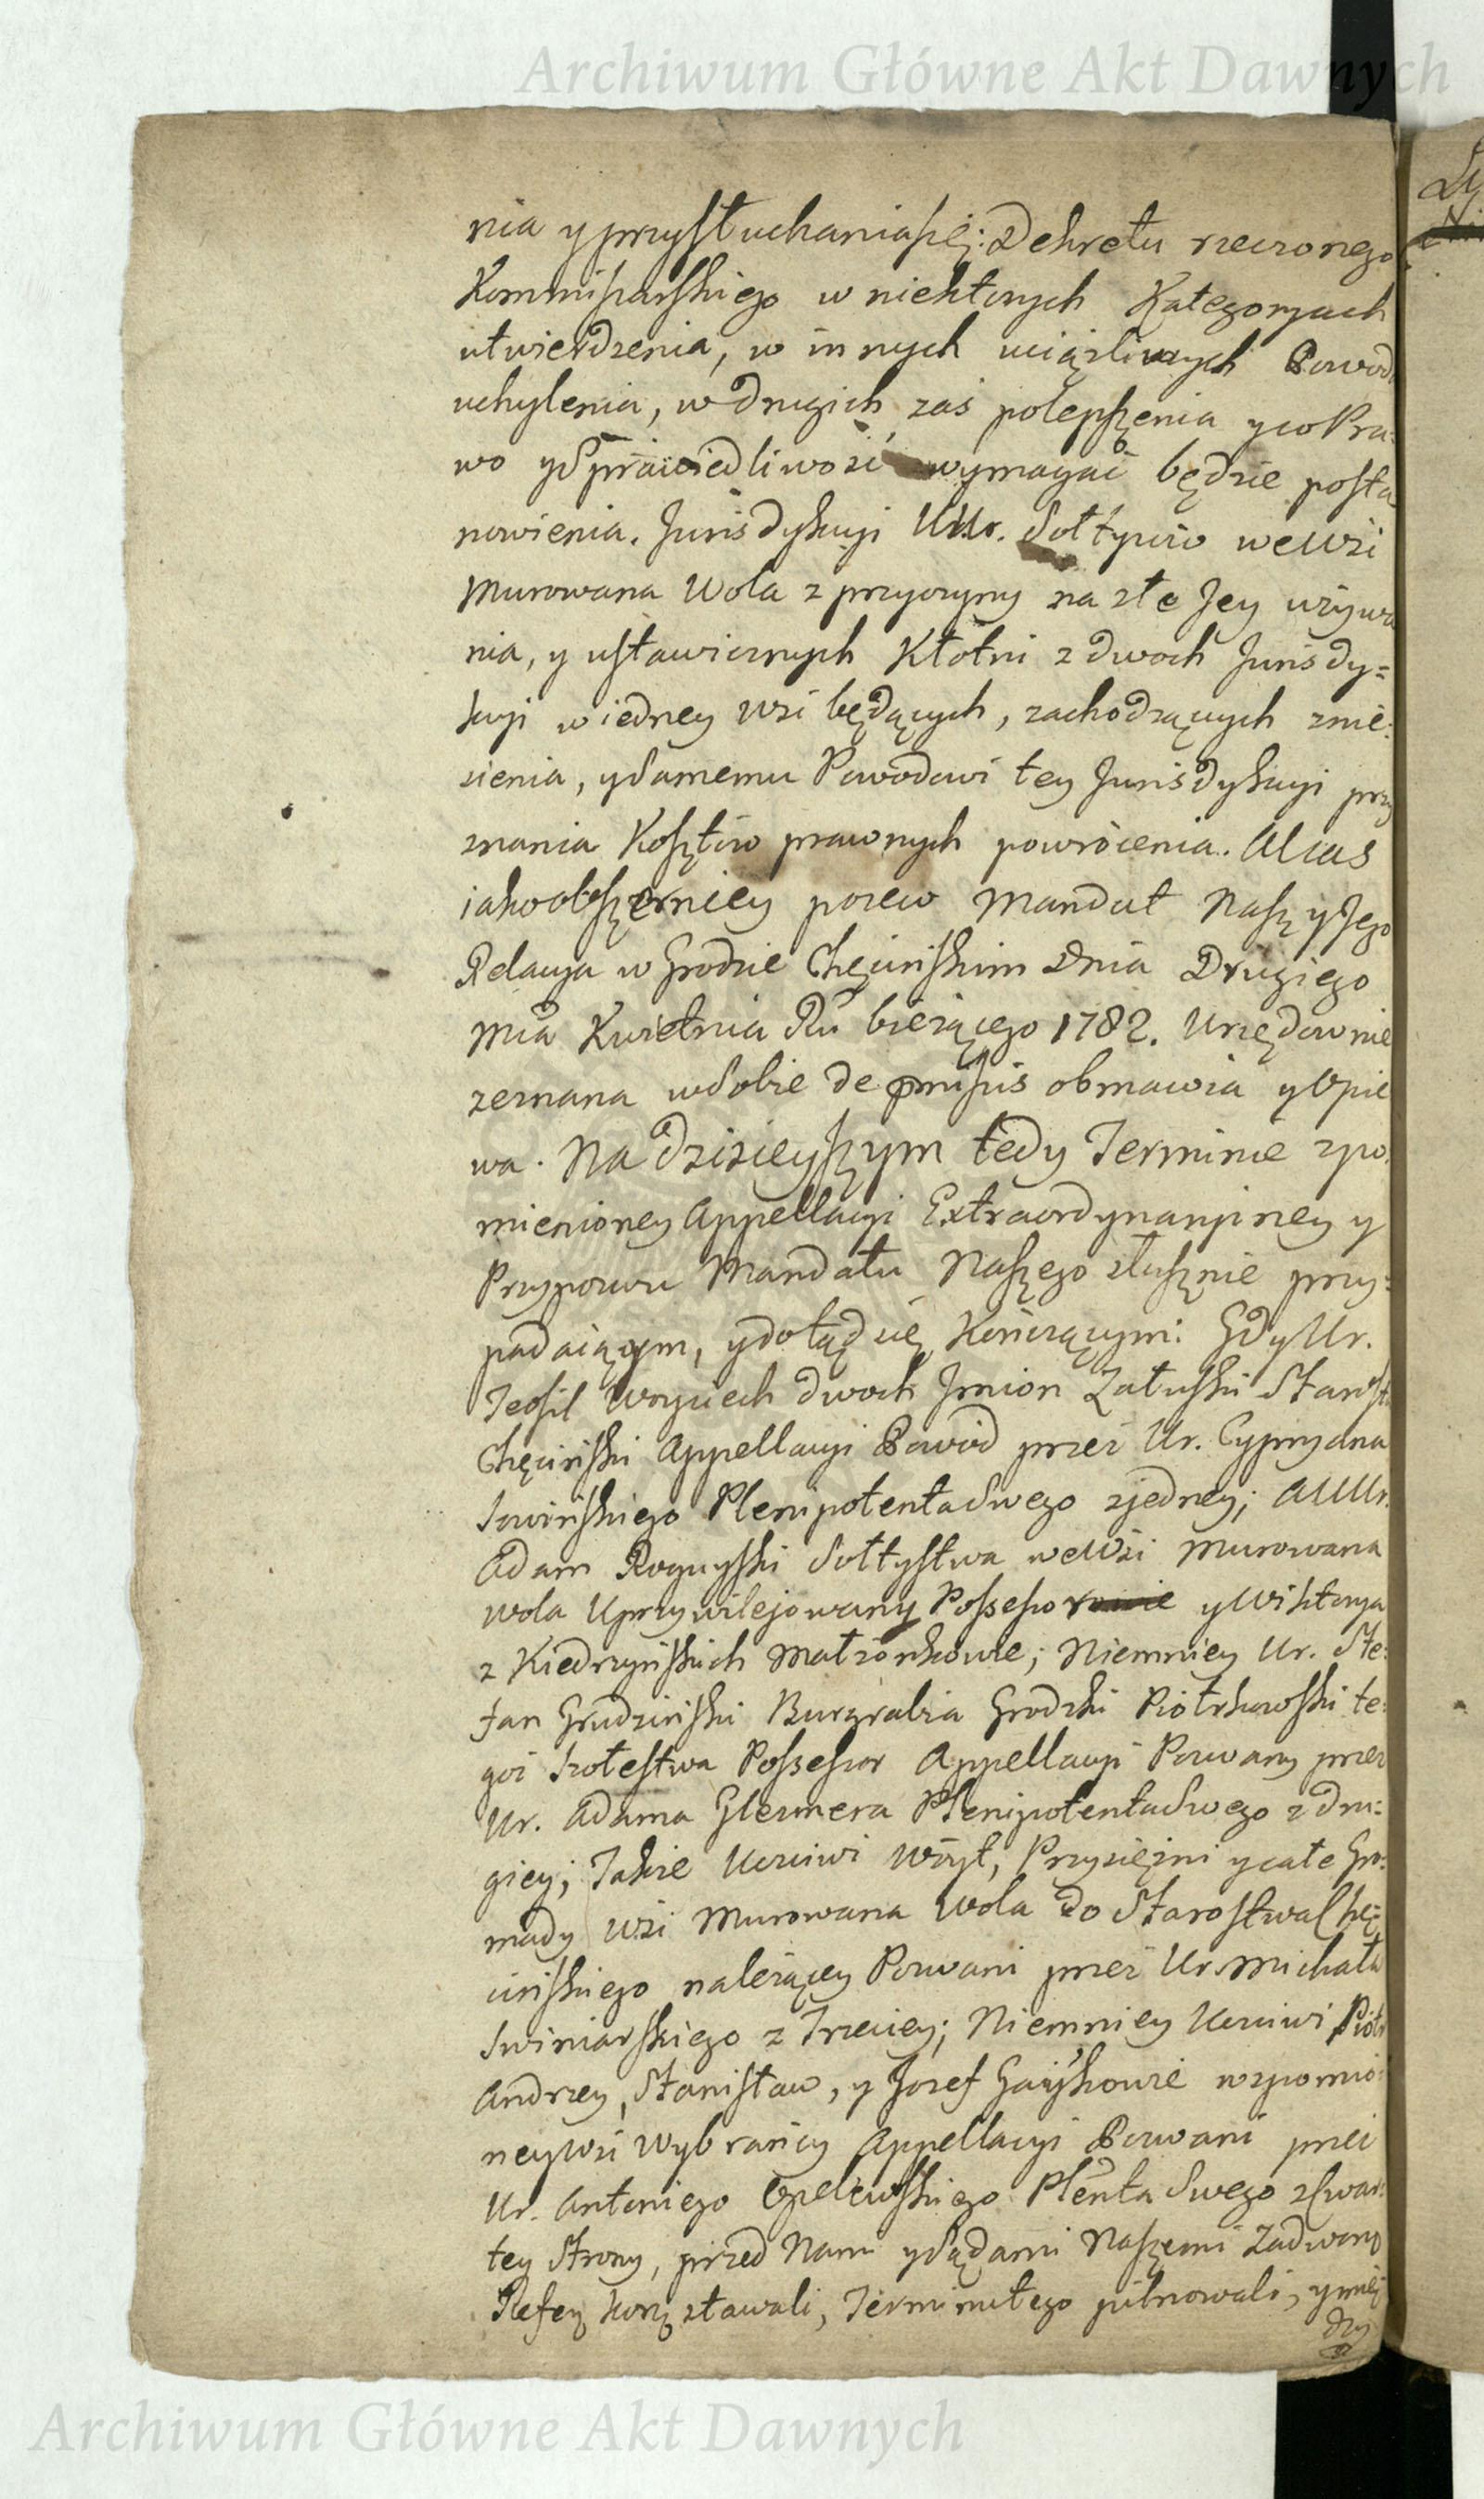 Archiwum Główne Akt Dawnych
nia y przysłuchania się: Dekretu rzeczonego
Kommissarskiego w niektorych Kategoryach
utwierdzenia, w innych uciążliwych Powod.
uchylenia, w drugich zaś polepszenia y co Pra:
wo y Sprawiedliwość wymagać będzie posta
nowienia. Jurisdykcyi UUr. Sołtysów we Wsi
Murowana Wola z przyczyny na złe Jey używa
nia, y ustawicznych Kłotni z dwoch Jurisdy=
kcyi w iedney wsi będących, zachodzących znie:
sienia, y Samemu Powodowi tey Jurisdykcyi przy
znania Kosztów prawnych powrócenia. Alias
iako obszerniey pozew Mandat Nasz y Jego
Relacya w Grodzie Chęcińskim Dnia Drugiego
Mca Kwietnia Ru bieżącego 1782. Urzędownie
zeznana w Sobie de praemissis obmawia y Opie
wa. Na dzisieyszym tedy Terminie zpo
mienioney Appellacyi Extraordynaryiney y
Przypozwu Mandatu Naszego słusznie przy:
padaiącym, y dotąd się Kończącym: Gdy Ur.
Teofil Woyciech dwoch Jmion Załuski Starosta
Chęciński Appellacyi Powód przez Ur. Cypryana
Sowińskiego Plenipotenta Swego z jedney; A UUr.
Adam Rogoyski Sołtystwa we Wsi Murowana
Wola Uprzywilejowany Possessor y Wiktorya
z Kiedrzyńskich Małżonkowie; Niemniey Ur. Ste:
fan Grudziński Burgrabia Grodzki Piotrkowski te:
goż Szołtestwa Possessor Appellacyi Pozwany przez
Ur. Adama Glezmera Plenipotenta Swego z dru:
giey; Także Uczciwi Wóyt, Przysiężni y całe Gro:
mady wsi Murowana Wola do Starostwa Chę:
cińskiego należącey Pozwani przez Ur. Michała
Swiniarskiego z Trzeciey; Niemniey Uczciwi Piotr
Andrzey, Stanisław, y Jozef Gayskowie wzpomio
ney Wsi Wybrańcy Appellacyi Pozwani przez
Ur. Antoniego Opelewskiego Plenta Swego z Czwar:
tey Strony, przed Nami y Sądami Naszemi Zadworn
Refer. Kor. stawali, Terminu tego pilnowali, y mię
dzy
Archiwum Główne Akt Dawnych